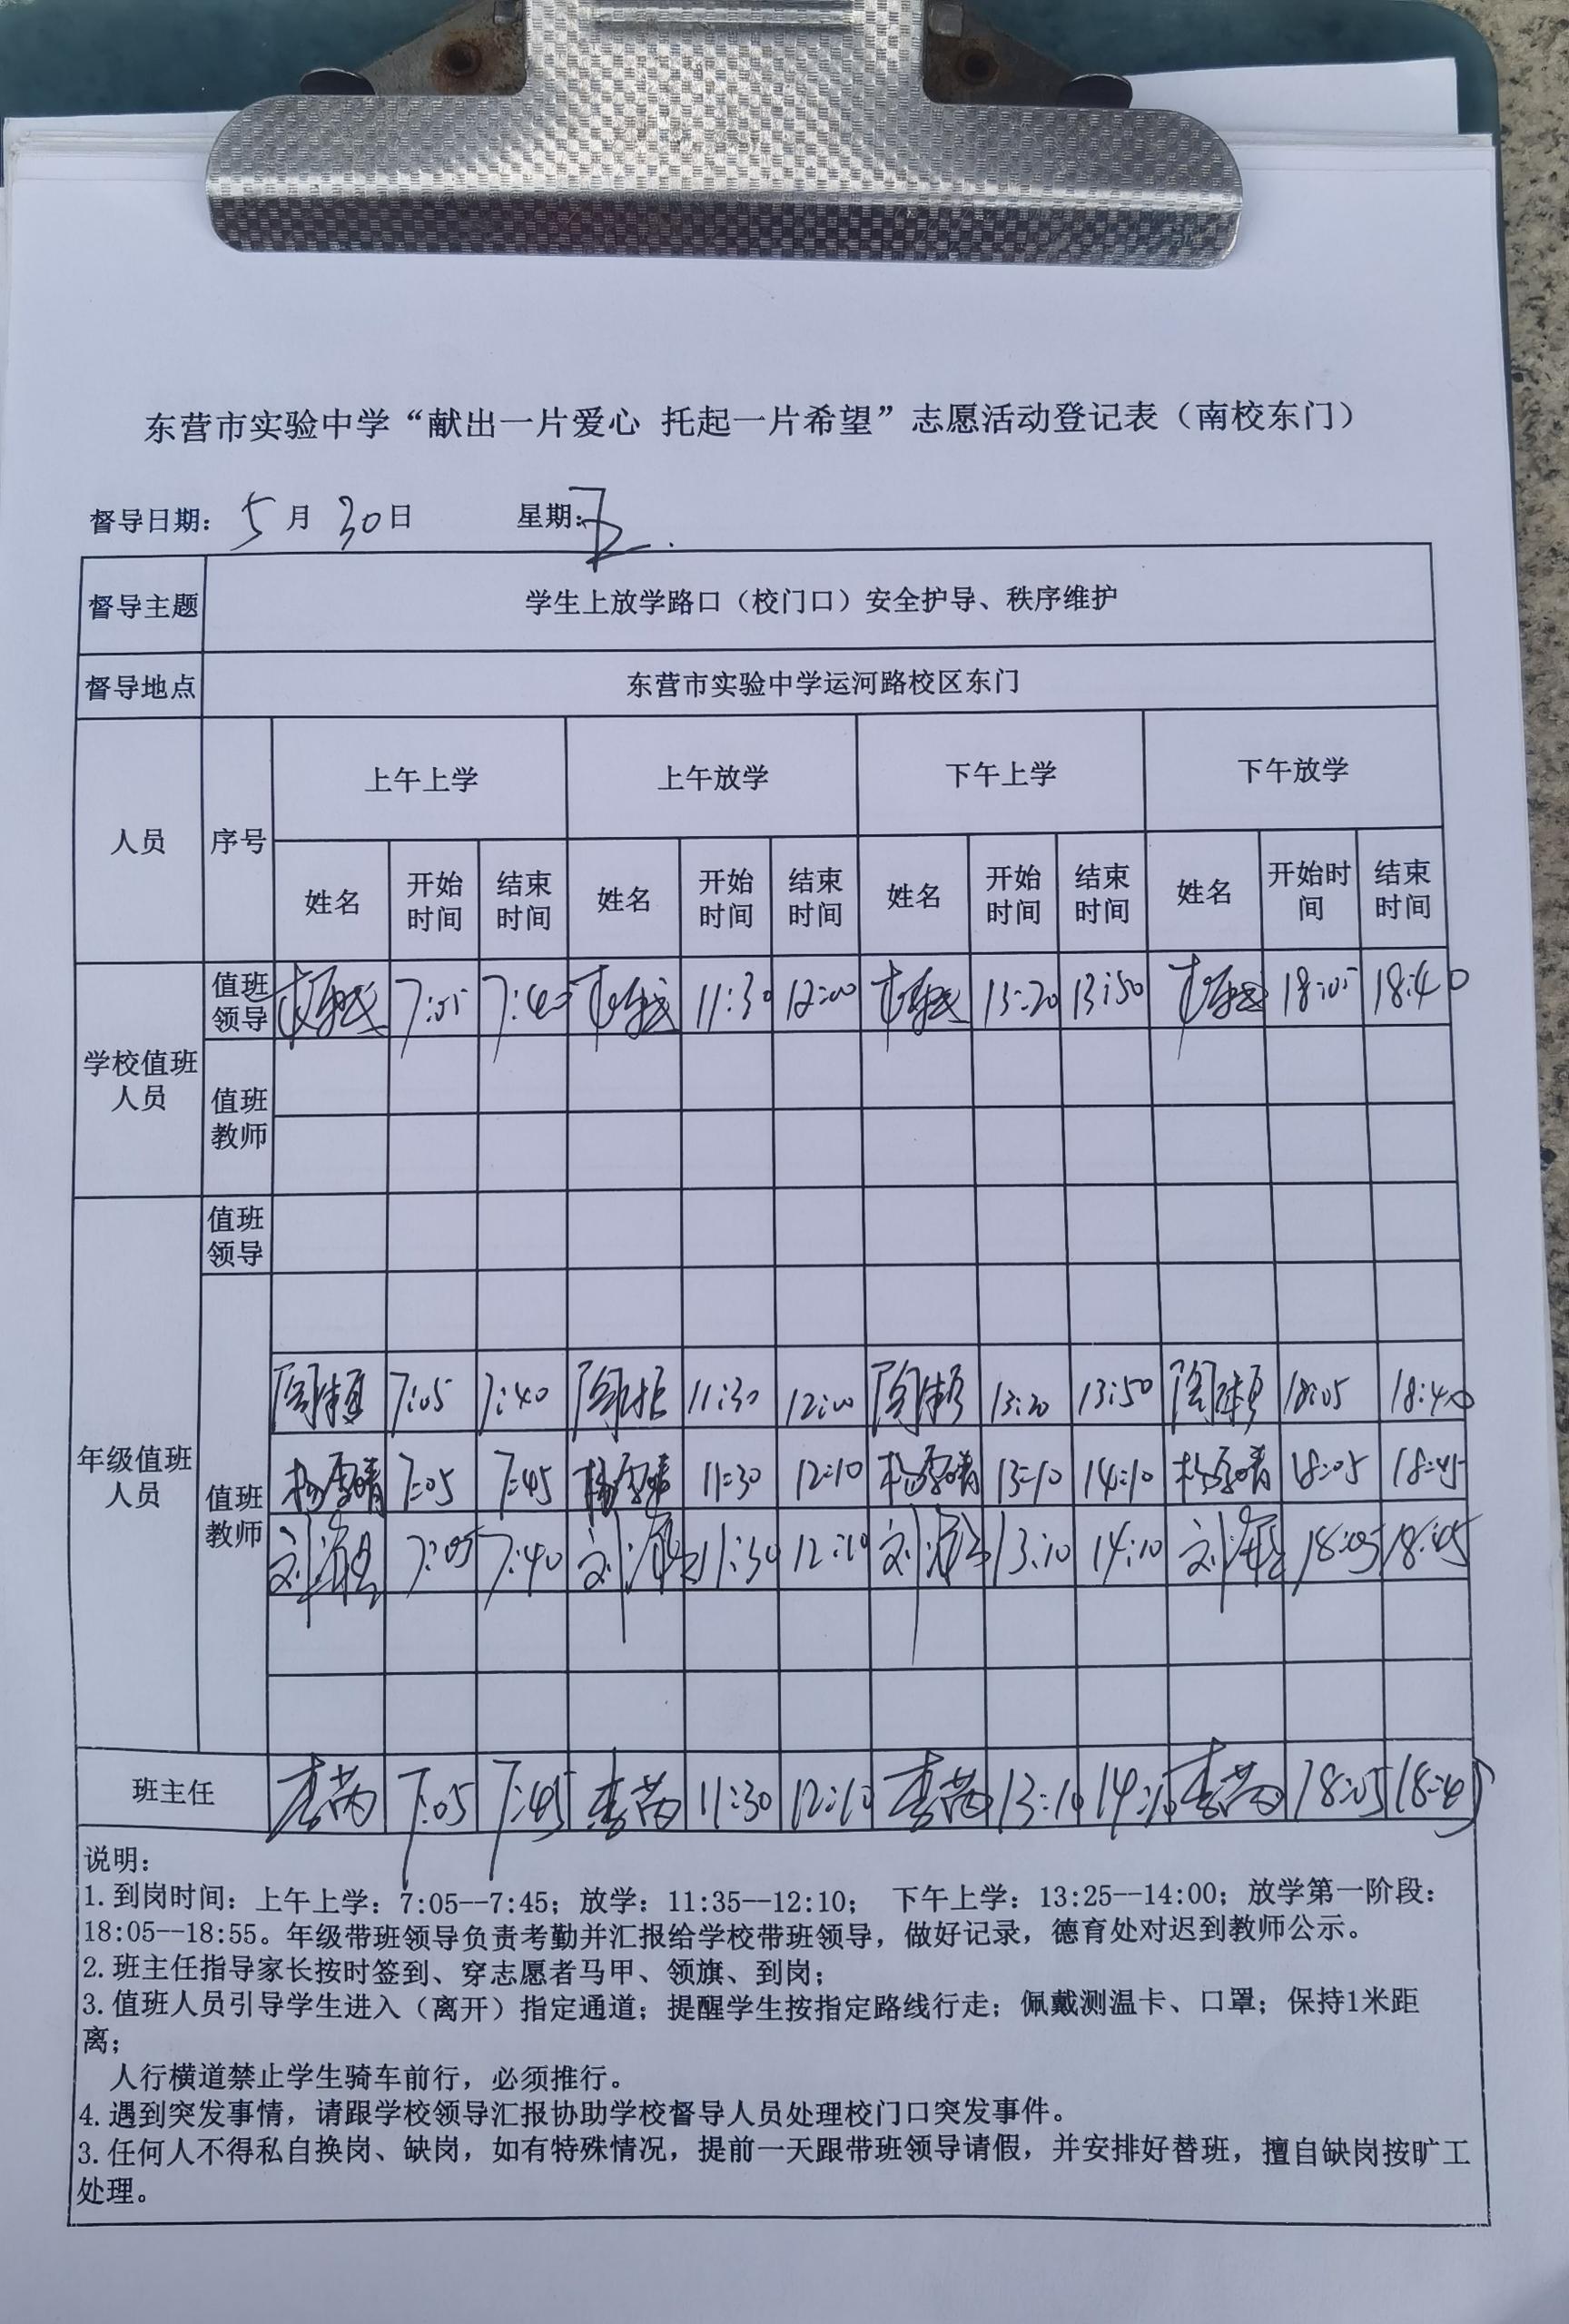 东营市实验中学“献出一片爱心 托起一片希望”志愿活动登记表（南校东门）
督导日期： 5 月 30 日 星期： 五
督导主题 学生上放学路口（校门口）安全护导、秩序维护
督导地点 东营市实验中学运河路校区东门
人员 序号 上午上学 上午放学 下午上学 下午放学
姓名 开始时间 结束时间 姓名 开始时间 结束时间 姓名 开始时间 结束时间 姓名 开始时间 结束时间
学校值班人员 值班领导 7:05 7:40 11:30 12:00 13:20 13:50 18:05 18:40
值班教师
年级值班人员 值班领导
值班教师
7:05 7:40 11:30 12:00 13:20 13:50 18:05 18:40
7:05 7:45 11:30 12:10 13:10 14:10 18:05 18:45
刘 7:05 7:40 刘 11:30 12:10 刘 13:10 14:10 刘 18:05 18:45
班主任 李芮 7:05 7:45 李芮 11:30 12:10 李芮 13:10 14:10 李芮 18:05 18:45
说明：
1.到岗时间：上午上学：7:05--7:45；放学：11:35--12:10； 下午上学：13:25--14:00；放学第一阶段：
18:05--18:55。年级带班领导负责考勤并汇报给学校带班领导，做好记录，德育处对迟到教师公示。
2.班主任指导家长按时签到、穿志愿者马甲、领旗、到岗；
3.值班人员引导学生进入（离开）指定通道；提醒学生按指定路线行走；佩戴测温卡、口罩；保持1米距
离；
人行横道禁止学生骑车前行，必须推行。
4.遇到突发事情，请跟学校领导汇报协助学校督导人员处理校门口突发事件。
3.任何人不得私自换岗、缺岗，如有特殊情况，提前一天跟带班领导请假，并安排好替班，擅自缺岗按旷工
处理。